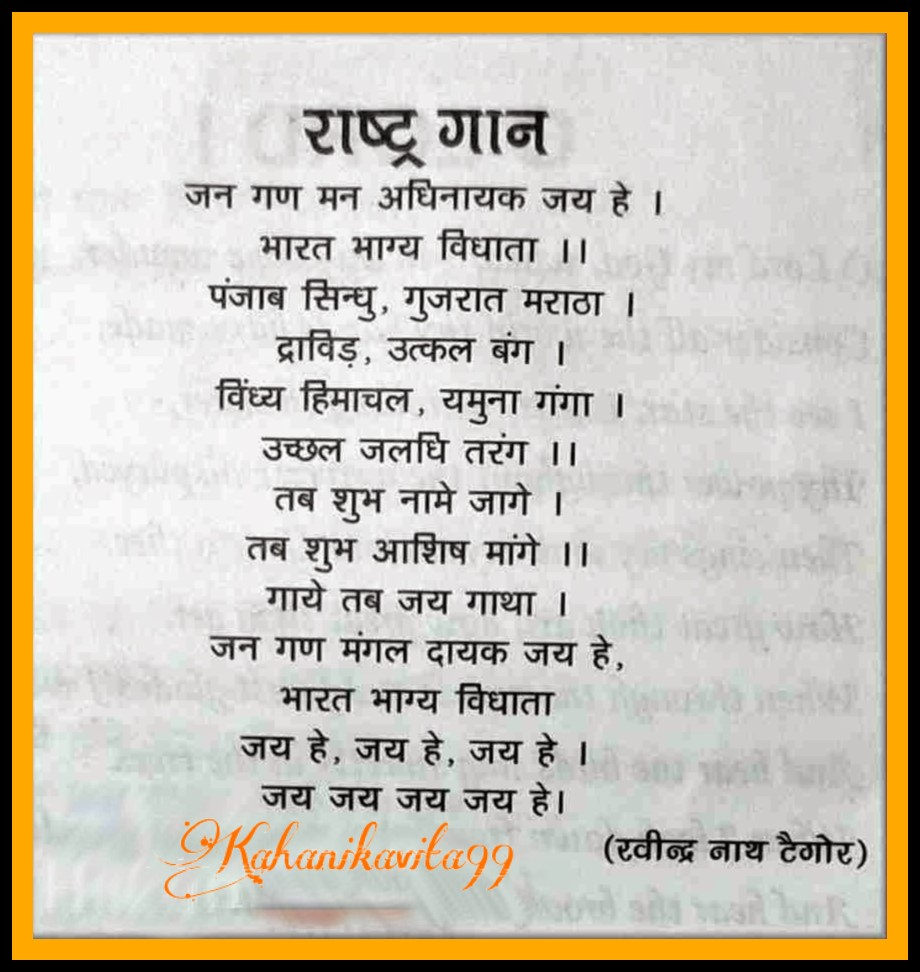 राष्ट्र गान
जन गण मन अधिनायक जय हे ।
भारत भाग्य विधाता ।।
पंजाब सिन्धु, गुजरात मराठा ।
द्राविड़, उत्कल बंग ।
विंध्य हिमाचल, यमुना गंगा ।
उच्छल जलधि तरंग ।।
तब शुभ नामे जागे ।
तब शुभ आशिष मांगे ।।
गाये तब जय गाथा ।
जन गण मंगल दायक जय हे,
भारत भाग्य विधाता
जय हे, जय हे, जय हे ।
जय जय जय जय हे।
Kahanikavita99
(रवीन्द्र नाथ टैगोर)